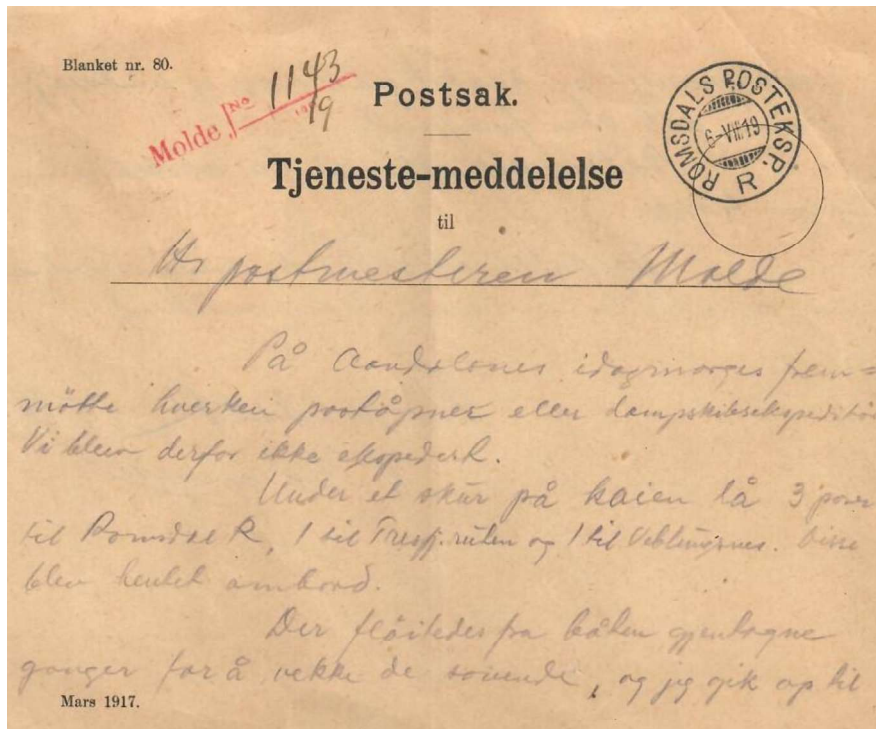 Blanket nr. 80.
Molde No 1143
19
Postsak.
ROMSDALS POSTEKSP. R
6-VII.19
Tjeneste-meddelelse
til
Hr postmesteren Molde
På Aandalsnes idagmorges frem=
møtte hverken poståpner eller dampskibsekspeditør
Vi blev derfor ikke ekspedert.
Under et skur på kaien lå 3 poser
til Romsdal R, 1 til Tresfj.ruten og 1 til Veblungsnes. Disse
blev hentet ombord.
Der fløitedes fra båten gjentagne
ganger for å vekke de sovende, og jeg gik op til
Mars 1917.